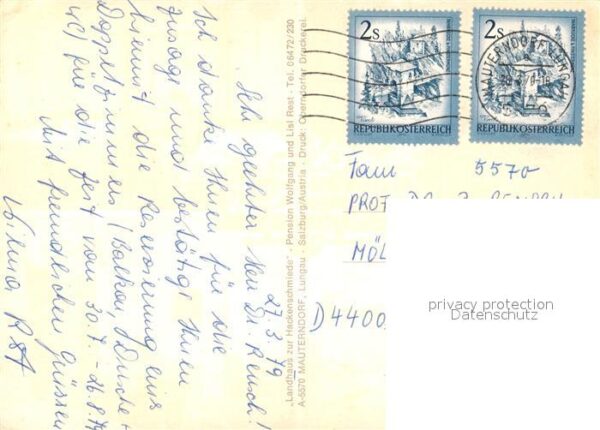 27.3.79
Sehr geehrter Herr Dr.
Ich danke Ihnen für die
Zusage und bestätige Ihnen
hiermit die Reservierung eines
Doppelzimmers (Balkon, Dusche +
WC) für die Zeit vom 30.7. – 26.8.79
Mit freundlichen Grüssen
"Landhaus zur Hackenschmiede" - Pension Wolfgang und Lisl Rest - Tel. 06472/230
A-5570 MAUTERNDORF, Lungau - Salzburg/Austria - Druck: Oberndorfer Druckerei.
2s
REPUBLIK ÖSTERREICH
2s
REPUBLIK ÖSTERREICH
MAUTERNDORF
Fam 5570
PROF. DR.
MÖL
D4400
privacy protection
Datenschutz